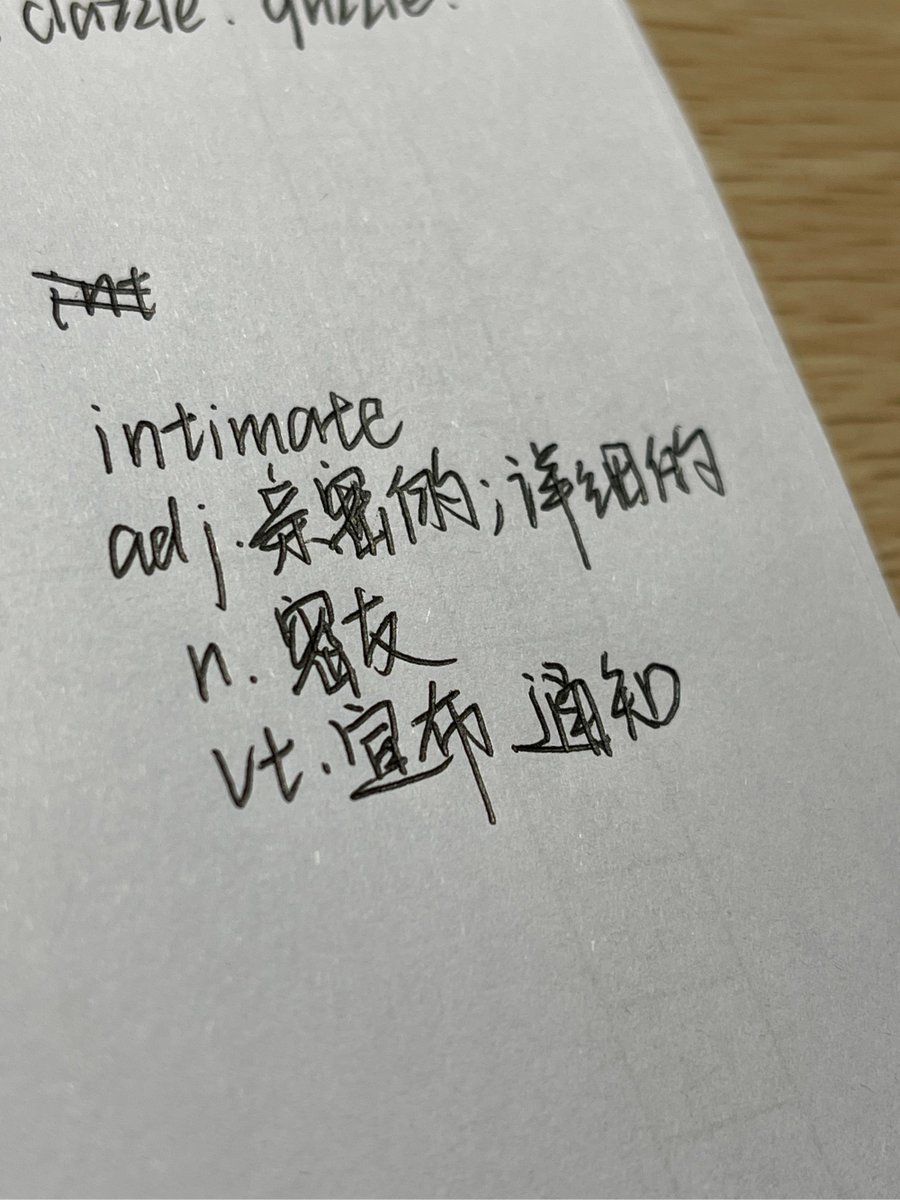 dazzle.
intimate
adj. 亲密的;详细的
n. 密友
vt. 宣布 通知